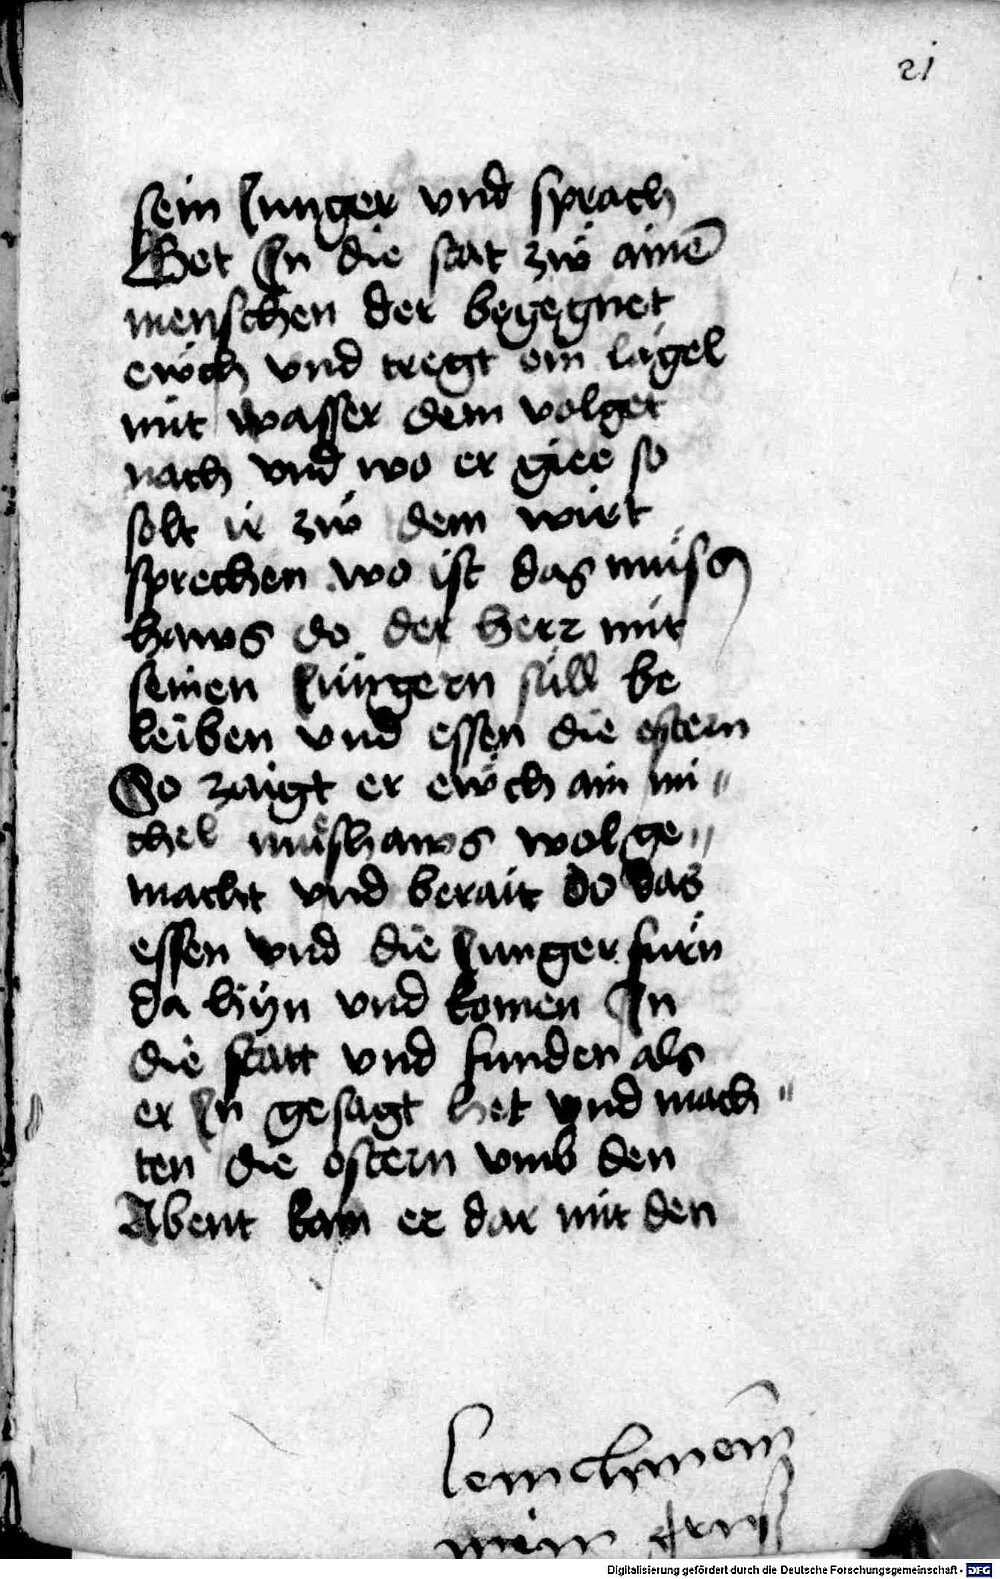 21
sein Junger vnd sprach
Get In die stat zw̋ ainē
menschen der begegnet
ewch vnd tregt ein lägel
mit wasser dem volget
nach vnd wo er giee so
solt ir zw̋ dem wirt
sprechen wo ist das müsch
haws do der herr mit
seinen Jüngern süll be
leiben vnd essen die ostern
So zaigt er ewch ain mi〃
chel müshaws wol ge〃
macht vnd berait do das
essen vnd die Junger fürn
da hyn vnd komen In
die statt vnd funden als
er In gesagt het vnd mach〃
ten die ostern vmb den
Abent kam er dar mit den
mein
Digitalisierung gefördert durch die Deutsche Forschungsgemeinschaft - DFG